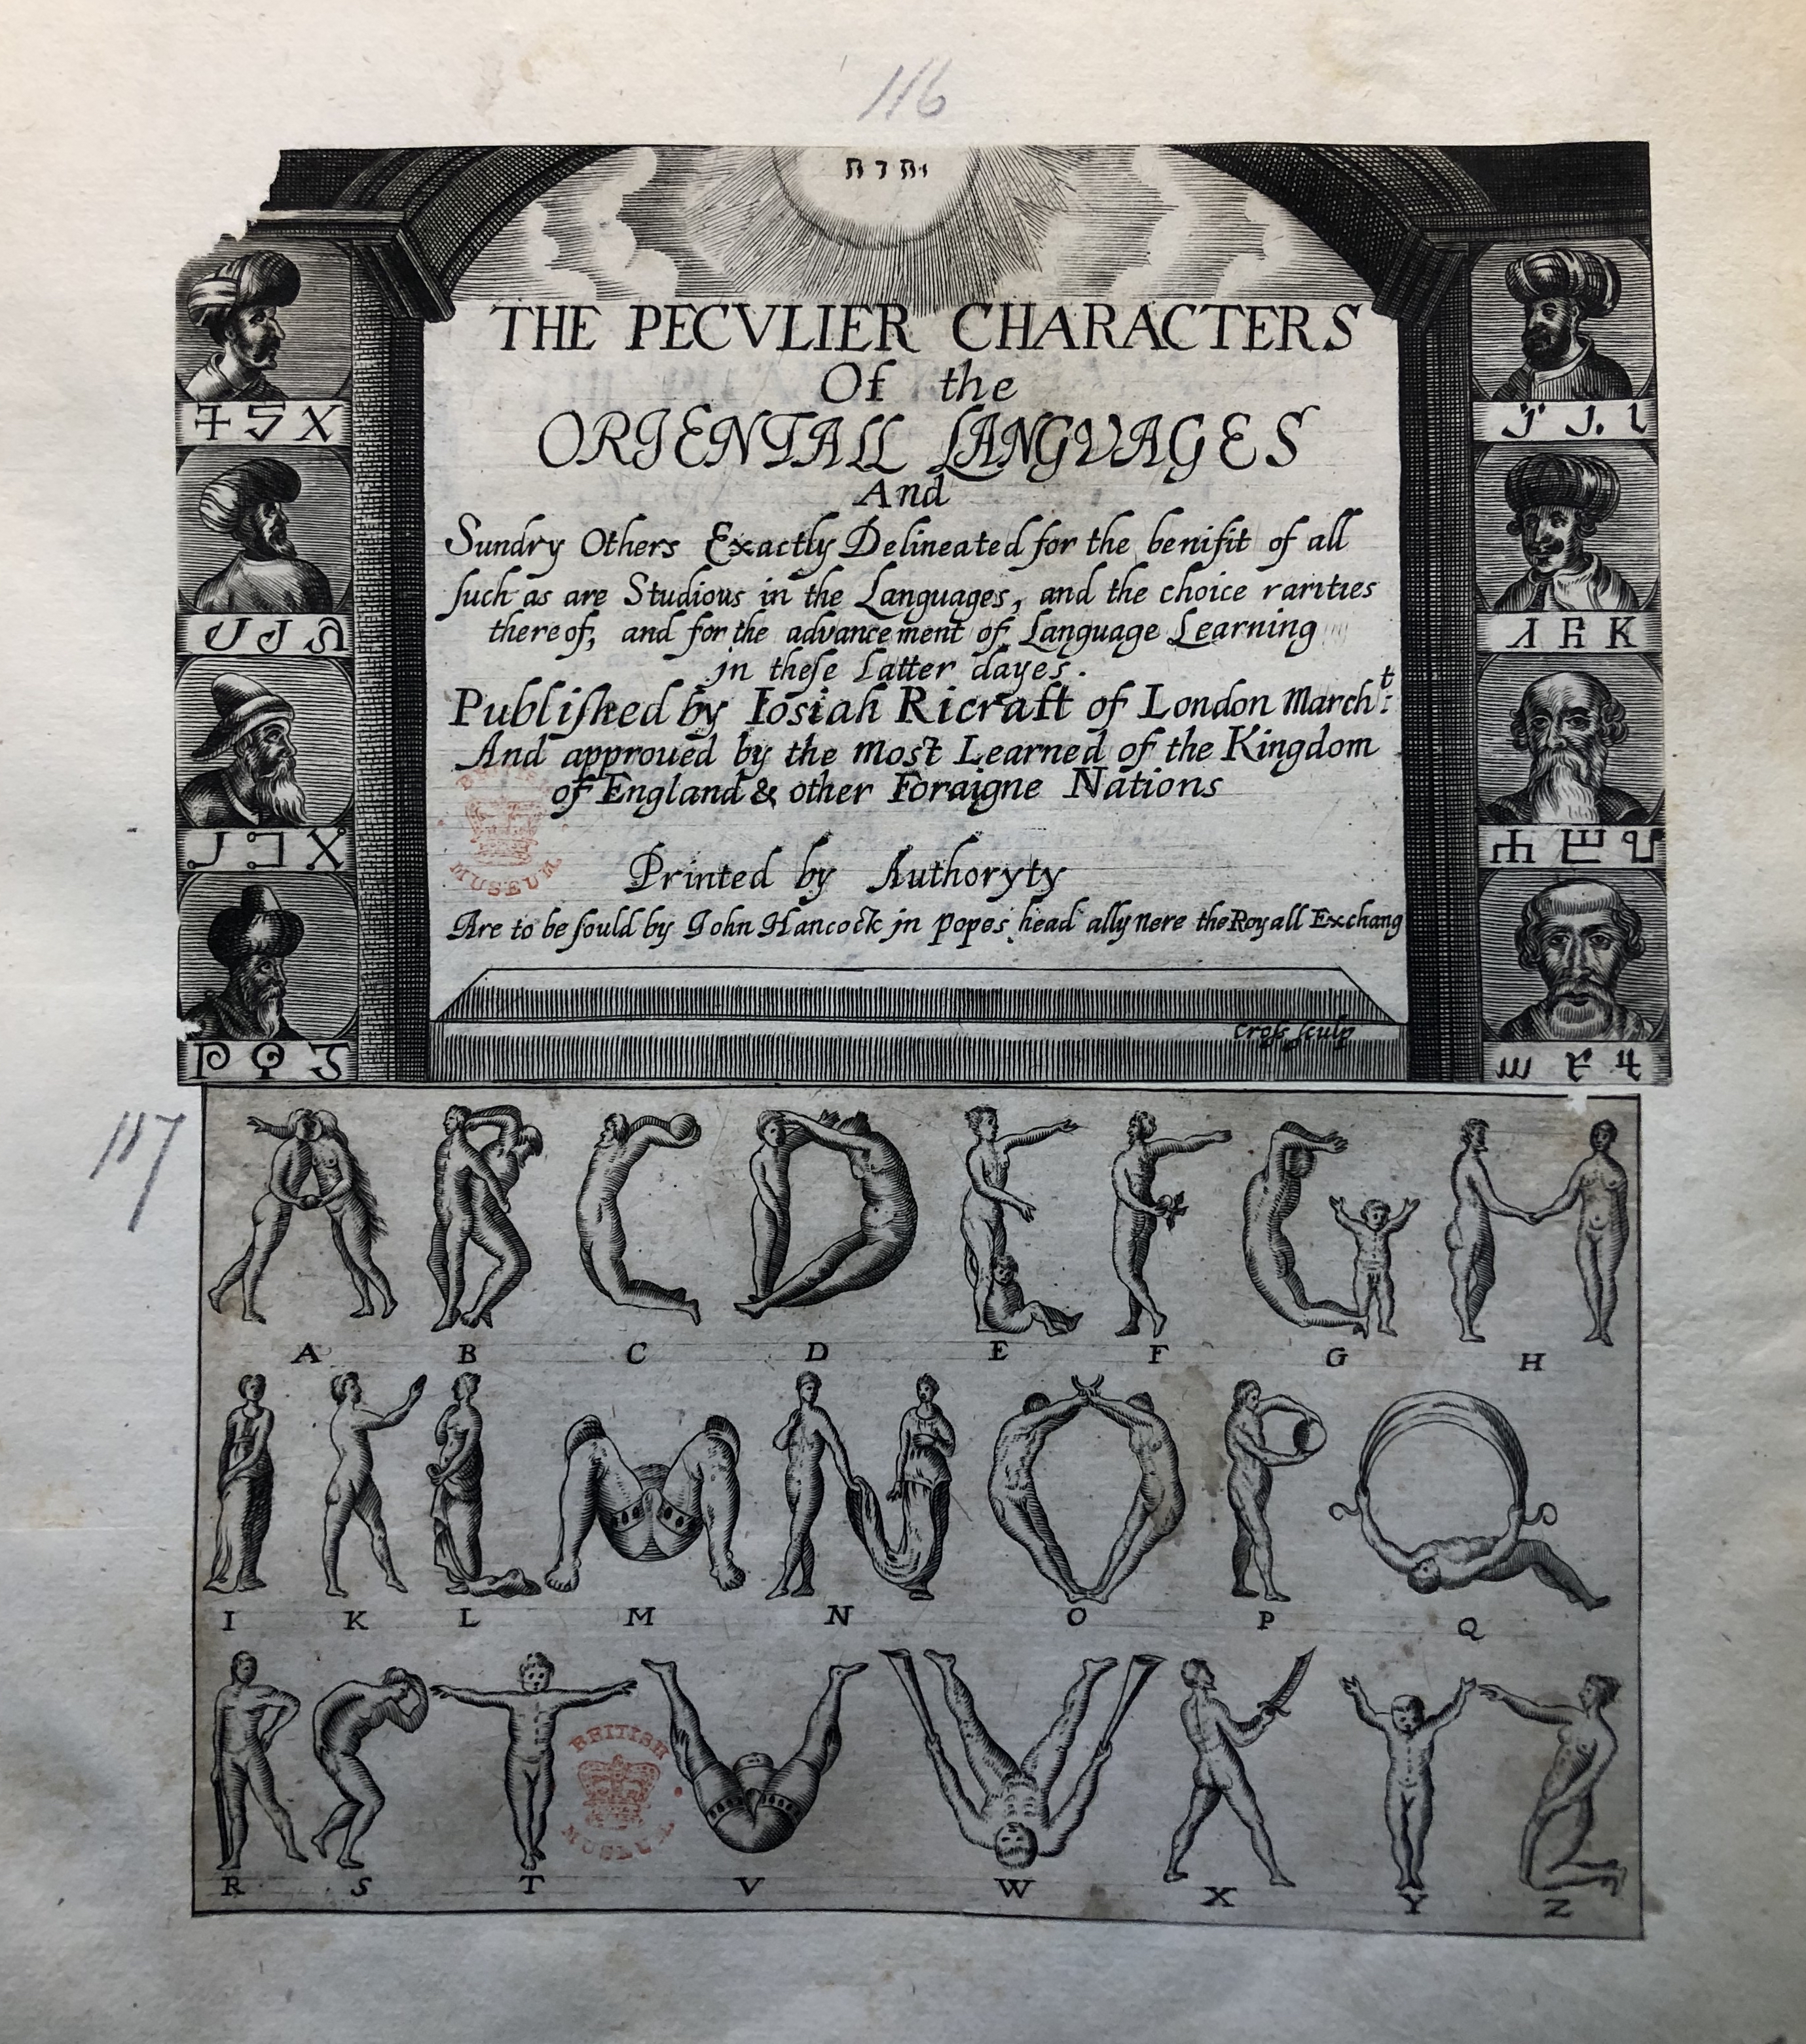 116
יהוה
THE PECVLIER CHARACTERS
Of the
ORIENTALL LANGVAGES
And
Sundry Others Exactly Delineated for the benifit of all
ſuch as are Studious in the Languages, and the choice rarities
thereof, and for the advancement of Language Learning
jn theſe Latter dayes.
Publiſhed by Iosiah Ricraft of London March:t
And approued by the most Learned of the Kingdom
of England & other Foraigne Nations
BRITISH
MUSEUM
Printed by Authoryty
Are to be ſould by John Hancock jn popes head ally nere the Royall Exchang
Croſs ſculp
117
A B C D E F G H
I K L M N O P Q
BRITISH
MUSEUM
R S T V W X Y Z